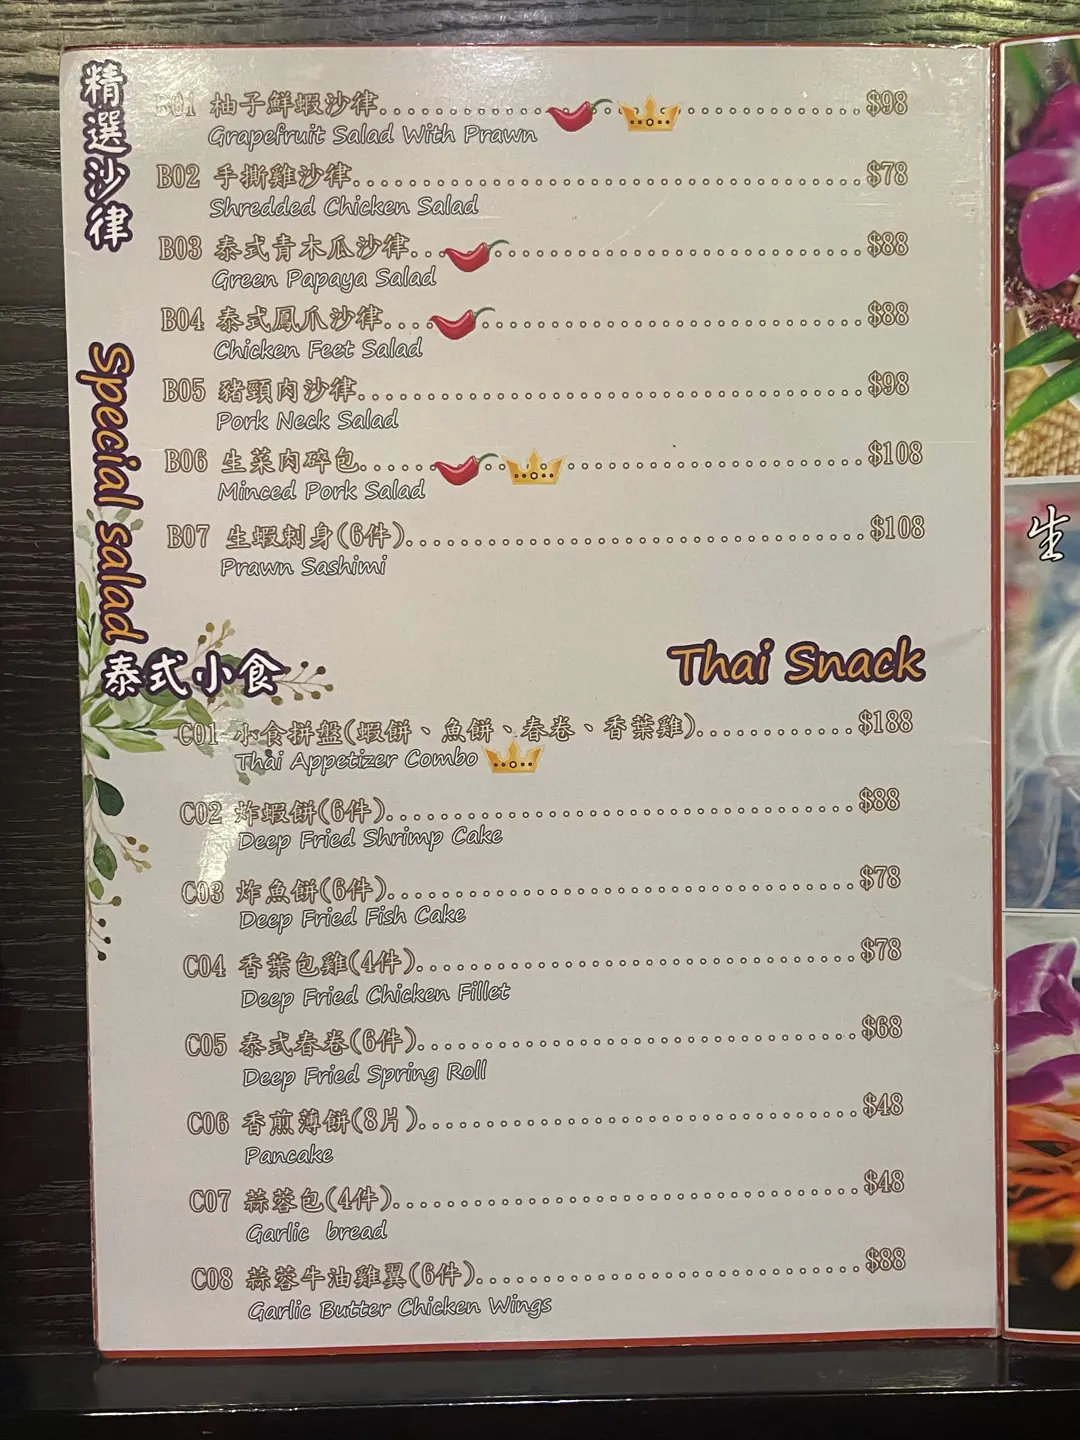 精選沙律
Special salad
B01 柚子鮮蝦沙律 $98
Grapefruit Salad With Prawn
B02 手撕雞沙律 $78
Shredded Chicken Salad
B03 泰式青木瓜沙律 $88
Green Papaya Salad
B04 泰式鳳爪沙律 $88
Chicken Feet Salad
B05 豬頸肉沙律 $98
Pork Neck Salad
B06 生菜肉碎包 $108
Minced Pork Salad
B07 生蝦刺身(6件) $108
Prawn Sashimi
泰式小食 Thai Snack
C01 小食拼盤(蝦餅、魚餅、春卷、香葉雞) $188
Thai Appetizer Combo
C02 炸蝦餅(6件) $88
Deep Fried Shrimp Cake
C03 炸魚餅(6件) $78
Deep Fried Fish Cake
C04 香葉包雞(4件) $78
Deep Fried Chicken Fillet
C05 泰式春卷(6件) $68
Deep Fried Spring Roll
C06 香煎薄餅(8片) $48
Pancake
C07 蒜蓉包(4件) $48
Garlic bread
C08 蒜蓉牛油雞翼(6件) $88
Garlic Butter Chicken Wings
生